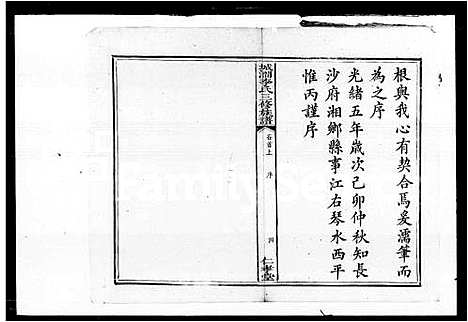 根與我心有契合焉爰濡筆而
為之序
光緒五年歲次己卯仲秋知長
沙府湘鄉縣事江右琴水西平
惟丙謹序
城澗李氏三修族譜
卷首上 序 四
仁孝堂
FamilySearch